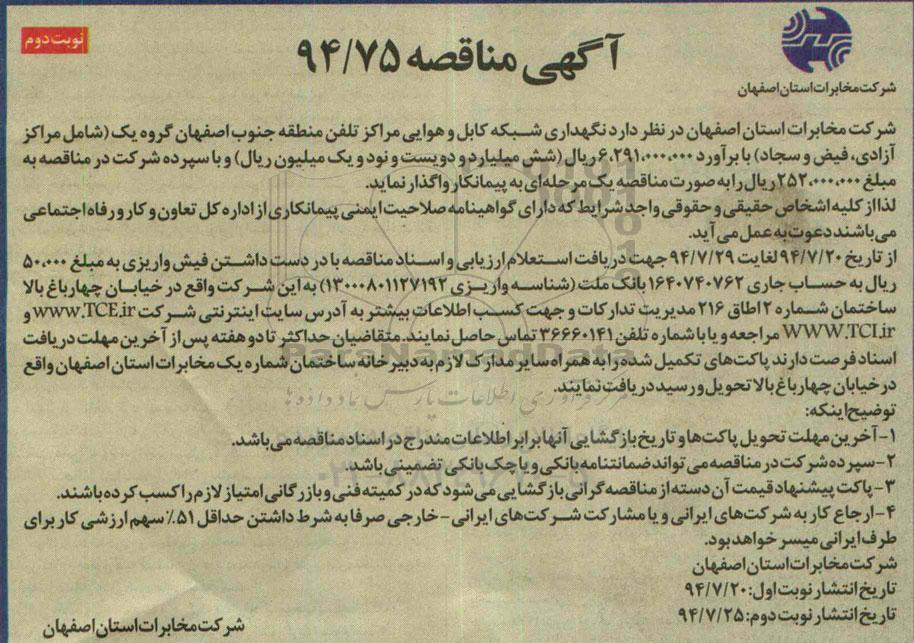 نوبت دوم
آگهی مناقصه ۹۴/۷۵
شرکت مخابرات استان اصفهان
شرکت مخابرات استان اصفهان در نظر دارد نگهداری شبکه کابل و هوایی مراکز تلفن منطقه جنوب اصفهان گروه یک (شامل مراکز
آزادی، فیض و سجاد) با برآورد ۶،۲۹۱،۰۰۰،۰۰۰ ریال (شش میلیارد و دویست و نود و یک میلیون ریال) و با سپرده شرکت در مناقصه به
مبلغ ۲۵۲،۰۰۰،۰۰۰ ریال را به صورت مناقصه یک مرحله‌ای به پیمانکار واگذار نماید.
لذا از کلیه اشخاص حقیقی و حقوقی واجد شرایط که دارای گواهینامه صلاحیت ایمنی پیمانکاری از اداره کل تعاون و کار و رفاه اجتماعی
می‌باشند دعوت به عمل می‌آید.
از تاریخ ۹۴/۷/۲۰ لغایت ۹۴/۷/۲۹ جهت دریافت استعلام ارزیابی و اسناد مناقصه با در دست داشتن فیش واریزی به مبلغ ۵۰،۰۰۰
ریال به حساب جاری ۱۶۴۰۷۴۰۷۶۲ بانک ملت (شناسه واریزی ۱۳۰۰۰۸۰۱۱۲۷۱۹۲) به این شرکت واقع در خیابان چهارباغ بالا
ساختمان شماره ۲ اطاق ۲۱۶ مدیریت تدارکات و جهت کسب اطلاعات بیشتر به آدرس سایت اینترنتی شرکت www.TCE.ir و
WWW.TCI.ir مراجعه و یا با شماره تلفن ۳۶۶۶۰۱۴۱ تماس حاصل نمایند. متقاضیان حداکثر تا دو هفته پس از آخرین مهلت دریافت
اسناد فرصت دارند پاکت‌های تکمیل شده را به همراه سایر مدارک لازم به دبیرخانه ساختمان شماره یک مخابرات استان اصفهان واقع
در خیابان چهارباغ بالا تحویل و رسید دریافت نمایند.
توضیح اینکه:
۱- آخرین مهلت تحویل پاکت‌ها و تاریخ بازگشایی آنها برابر اطلاعات مندرج در اسناد مناقصه می‌باشد.
۲- سپرده شرکت در مناقصه می‌تواند ضمانتنامه بانکی و یا چک بانکی تضمینی باشد.
۳- پاکت پیشنهاد قیمت آن دسته از مناقصه گرانی بازگشایی می‌شود که در کمیته فنی و بازرگانی امتیاز لازم را کسب کرده باشند.
۴- ارجاع کار به شرکت‌های ایرانی و یا مشارکت شرکت‌های ایرانی - خارجی صرفا به شرط داشتن حداقل ۵۱٪ سهم ارزشی کار برای
طرف ایرانی میسر خواهد بود.
شرکت مخابرات استان اصفهان
تاریخ انتشار نوبت اول: ۹۴/۷/۲۰
تاریخ انتشار نوبت دوم: ۹۴/۷/۲۵
شرکت مخابرات استان اصفهان